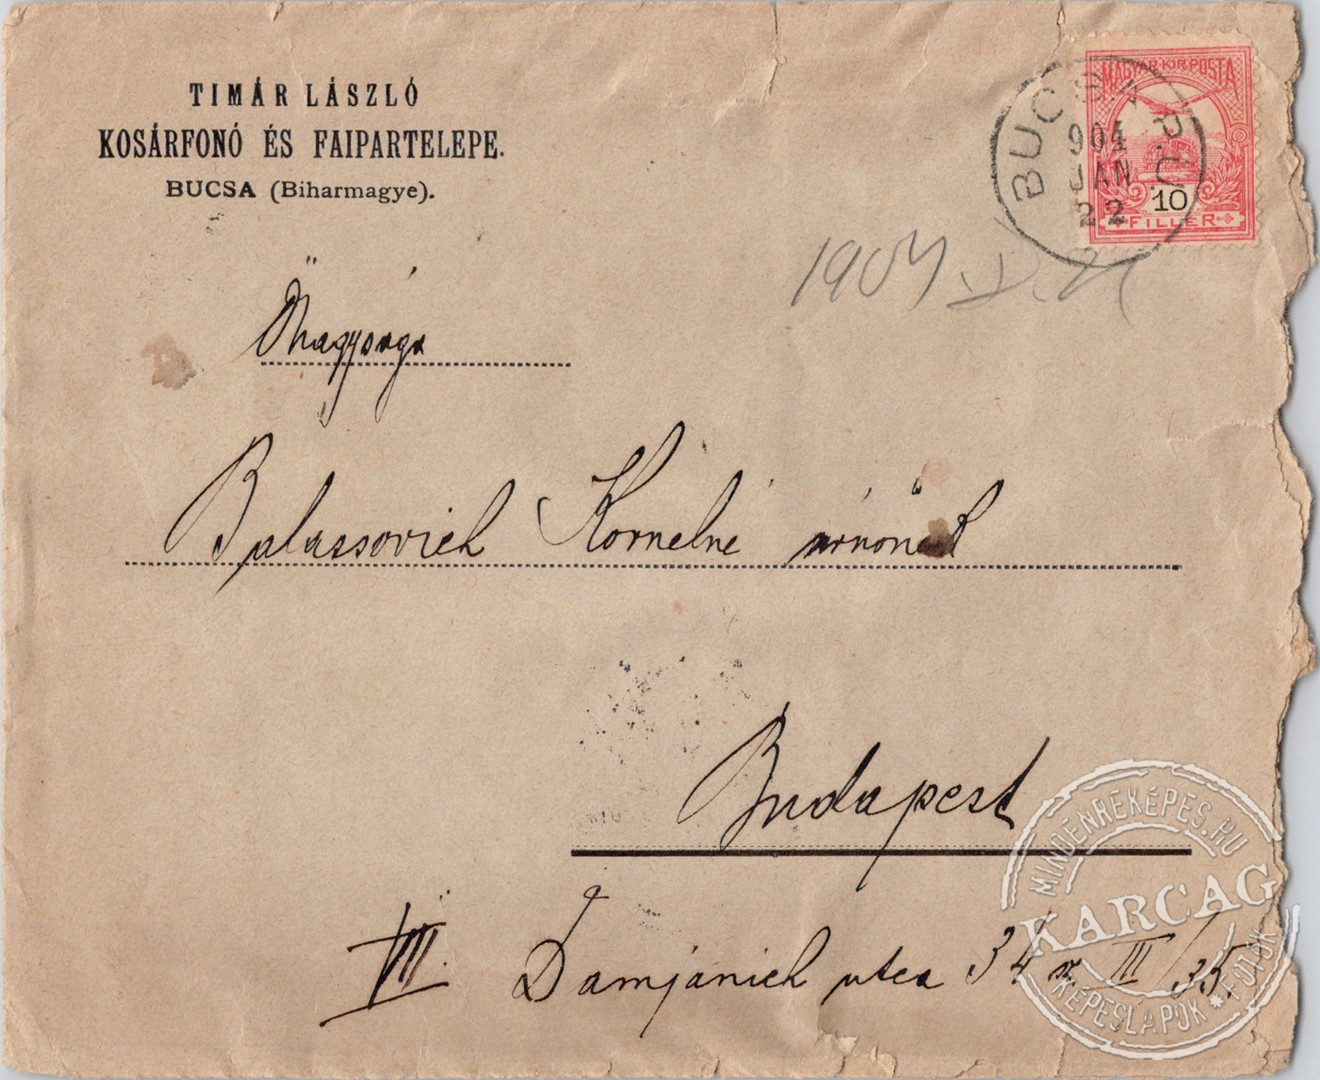 TIMÁR LÁSZLÓ
KOSÁRFONÓ ÉS FAIPARTELEPE.
BUCSA (Biharmagye).
MAGYAR·KIR·POSTA
10
FILLÉR
BUCSA P.U.
904
JAN
22
1904. I. 21
Őnagysága
Balassovich Kornelné úrnőnek
Budapest
VII. Damjanich utca 34 sz. III/35.
MINDENREKÉPES.HU
KARCAG
KÉPESLAPOK * FOTÓK